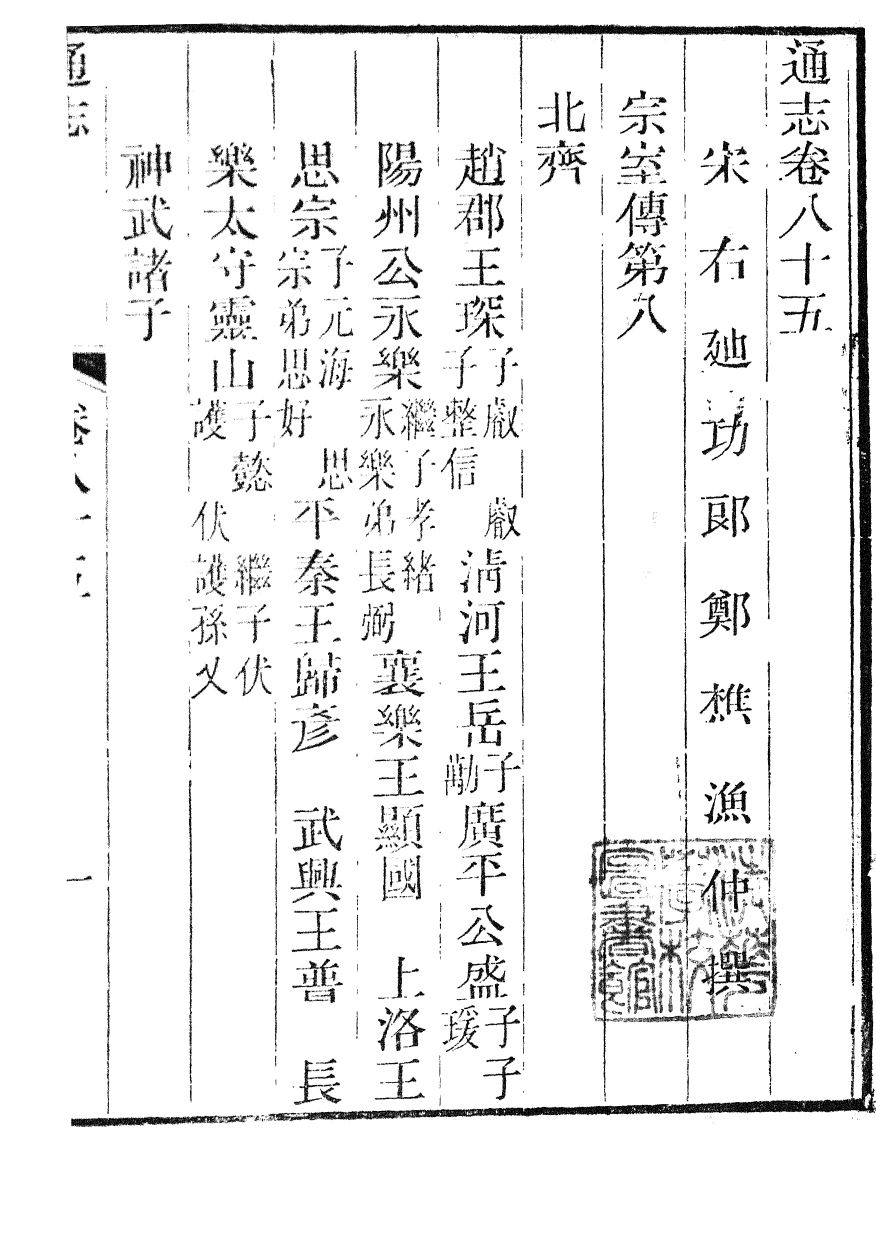 通志卷八十五
宋右廸功郎鄭樵漁仲撰
宗室傳第八
北齊
趙郡王琛子叡 叡子整信 清河王岳子勱廣平公盛子子瑗
陽州公永樂繼子孝緒永樂弟長弼 襄樂王顯國 上洛王
思宗子元海 思宗弟思好 平秦王歸彥 武興王普 長
樂太守靈山子懿 繼子伏護 伏護孫乂
神武諸子
通志 卷八十五 一